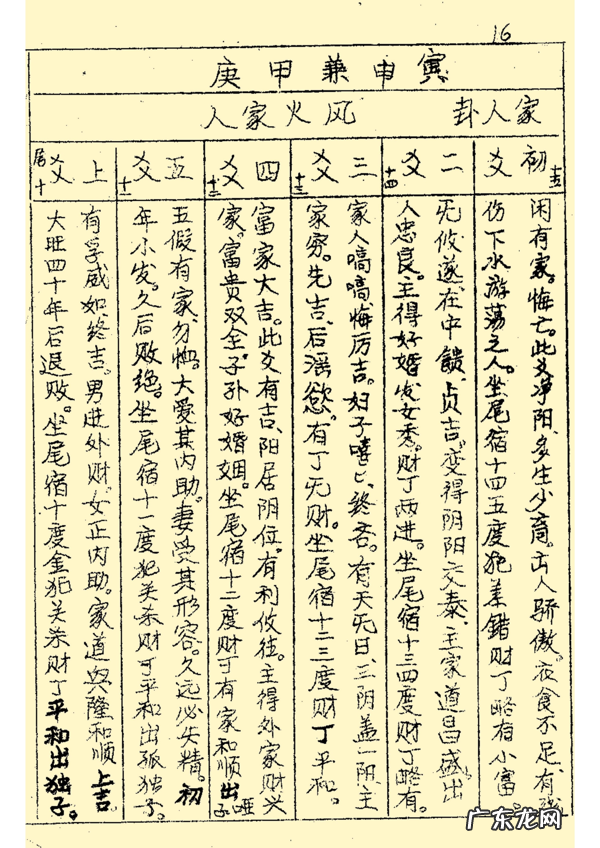 16
寅申兼甲庚
家人卦 风火家人
初爻 十五
闲有家。悔亡。此爻净阳、多生少育。出人骄傲。衣食不足、有残
伤下水游荡之人。坐尾宿十四五度犯差错财丁略有小富
二爻 十四
无攸遂、在中馈、贞吉。变得阴阳交泰、主家道昌盛。出
人忠良。主得好婚发女秀。财丁两进。坐尾宿十三四度财丁略有。
三爻 十三
家人嗃嗃悔厉吉。妇子嘻〻终吝。有天无日、三阴盖一阳、主
家穷。先吉、后淫慾。有丁无财。坐尾宿十二三度财丁平和。
四爻 十二
富家大吉。此爻有吉、阳居阴位。有利攸往。主得外家财兴
家。富贵双全。子孙好婚姻。坐尾宿十二度财丁有家和顺出哑子
五爻 十一
五假有家、勿恤。大爱其内助。妻受其形容。久远必失精。初
年小发。久后败绝。坐尾宿十一度犯关杀财丁平和出孤独子。
上爻 居十
有孚威如、终吉。男进外财。女正内助。家道兴隆和顺 上吉。
大旺四十年后退败。坐尾宿十度金犯关杀财丁平和出独子。
广东龙网